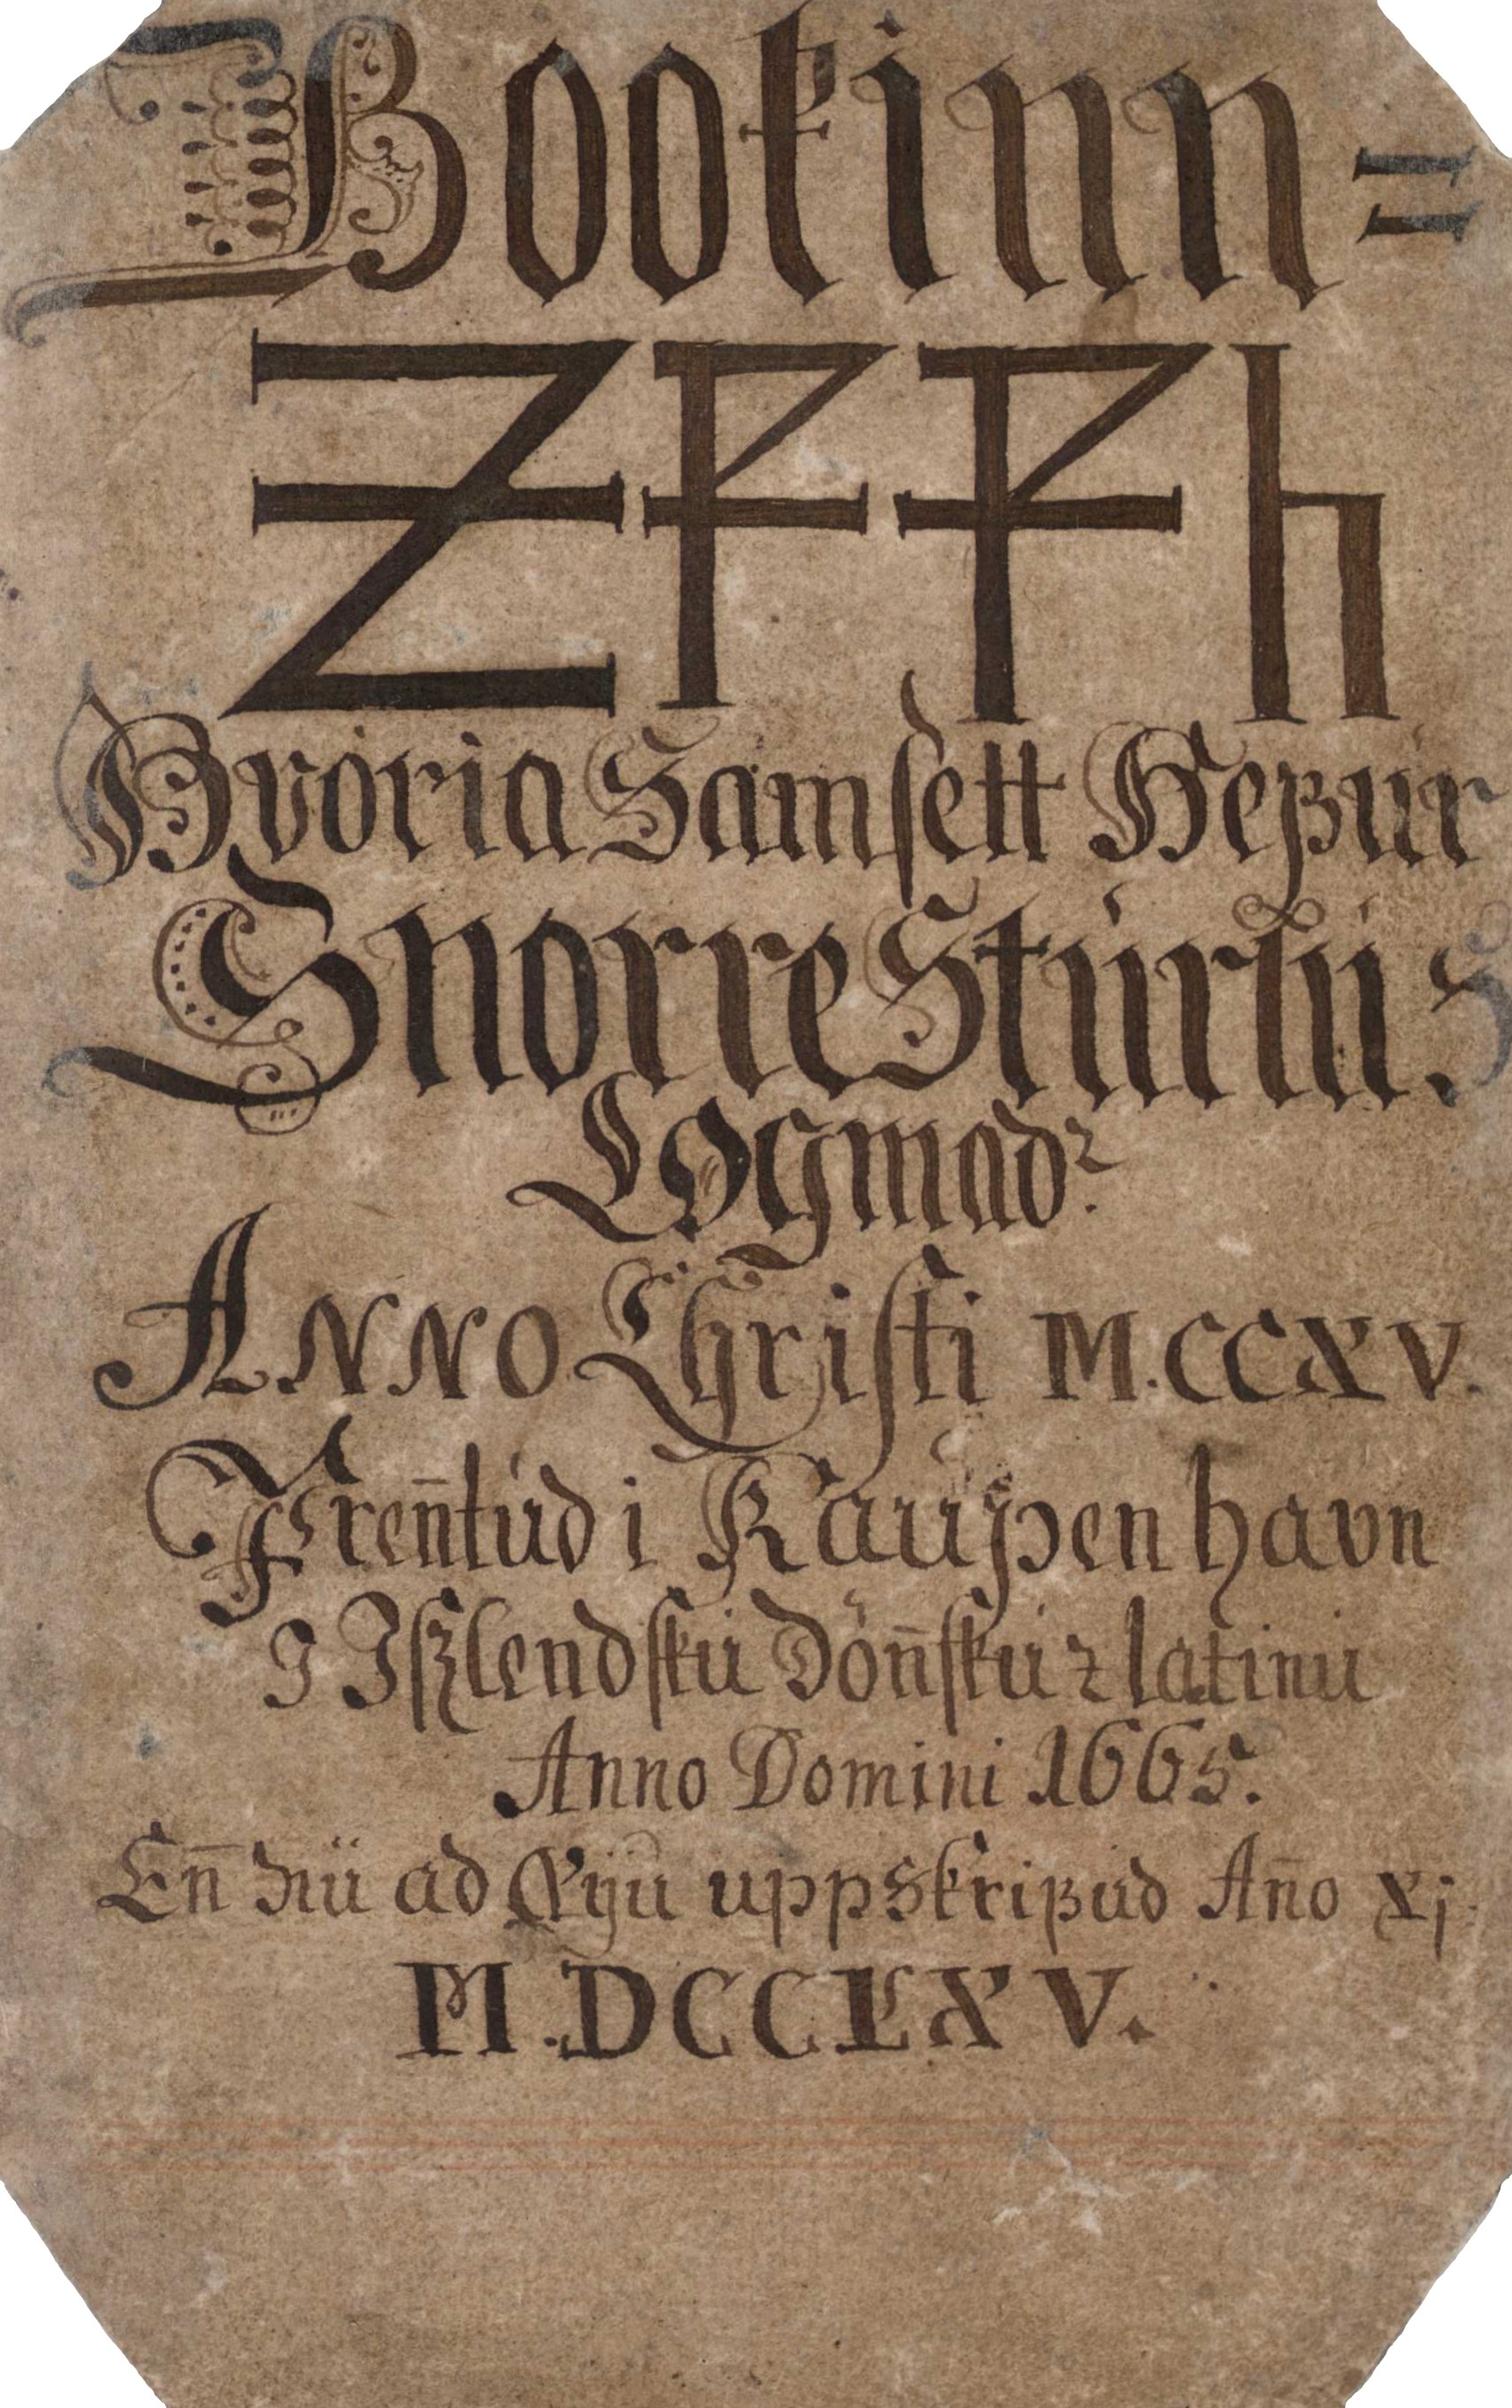 Bookinn=
Hvöria Samsett Hefúr
Snorre Stúrlú
Lögmadꝛ.
ANNO Christi M.CCXV.
Pren̄túd i Kaupen havn
I Iszlendskú Dön̄skú ꝛ latinú
Anno Domini 1665.
En̄ Nú ad Nyú uppskrifúd An̄o Xj
M.DCCLXV.